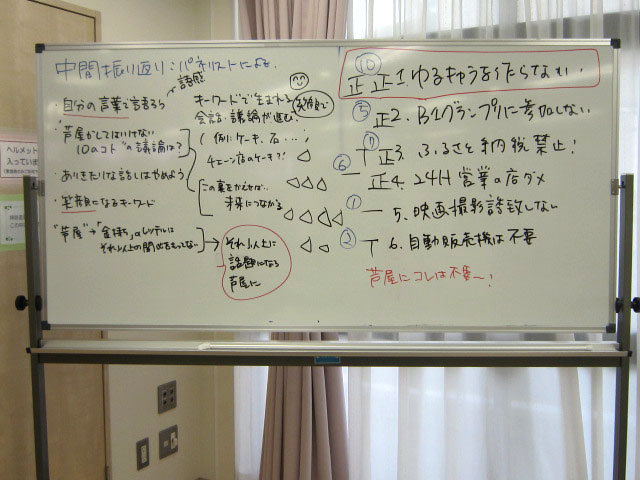 中間振り返り:パネリストによる
語感
・自分の言葉で言うら
・芦屋がしてはいけない
10のコト"の議論は?
・ありきたりな話しはやめよう
・笑顔になるキーワード
"芦屋"→"金持"のレッテルは
それ以上の関心をもってない
キーワードで生まれる
会話・議論が進む
笑顔で
(例:ケーキ、石・・・・)
チェーン店のケーキ?!
この裏をかえせば、
未来につながる
それ以上に
話題になる
芦屋に
⑩ 正正 1. ゆるキャラをつくらない
⑤ 正 2. B1グランプリに参加しない
⑦ 正T 3. ふるさと納税禁止!
⑥ 正一 4. 24H営業の店ダメ
① 一 5. 映画撮影誘致しない
② T 6. 自動販売機は不要
芦屋にコレは不要〜!